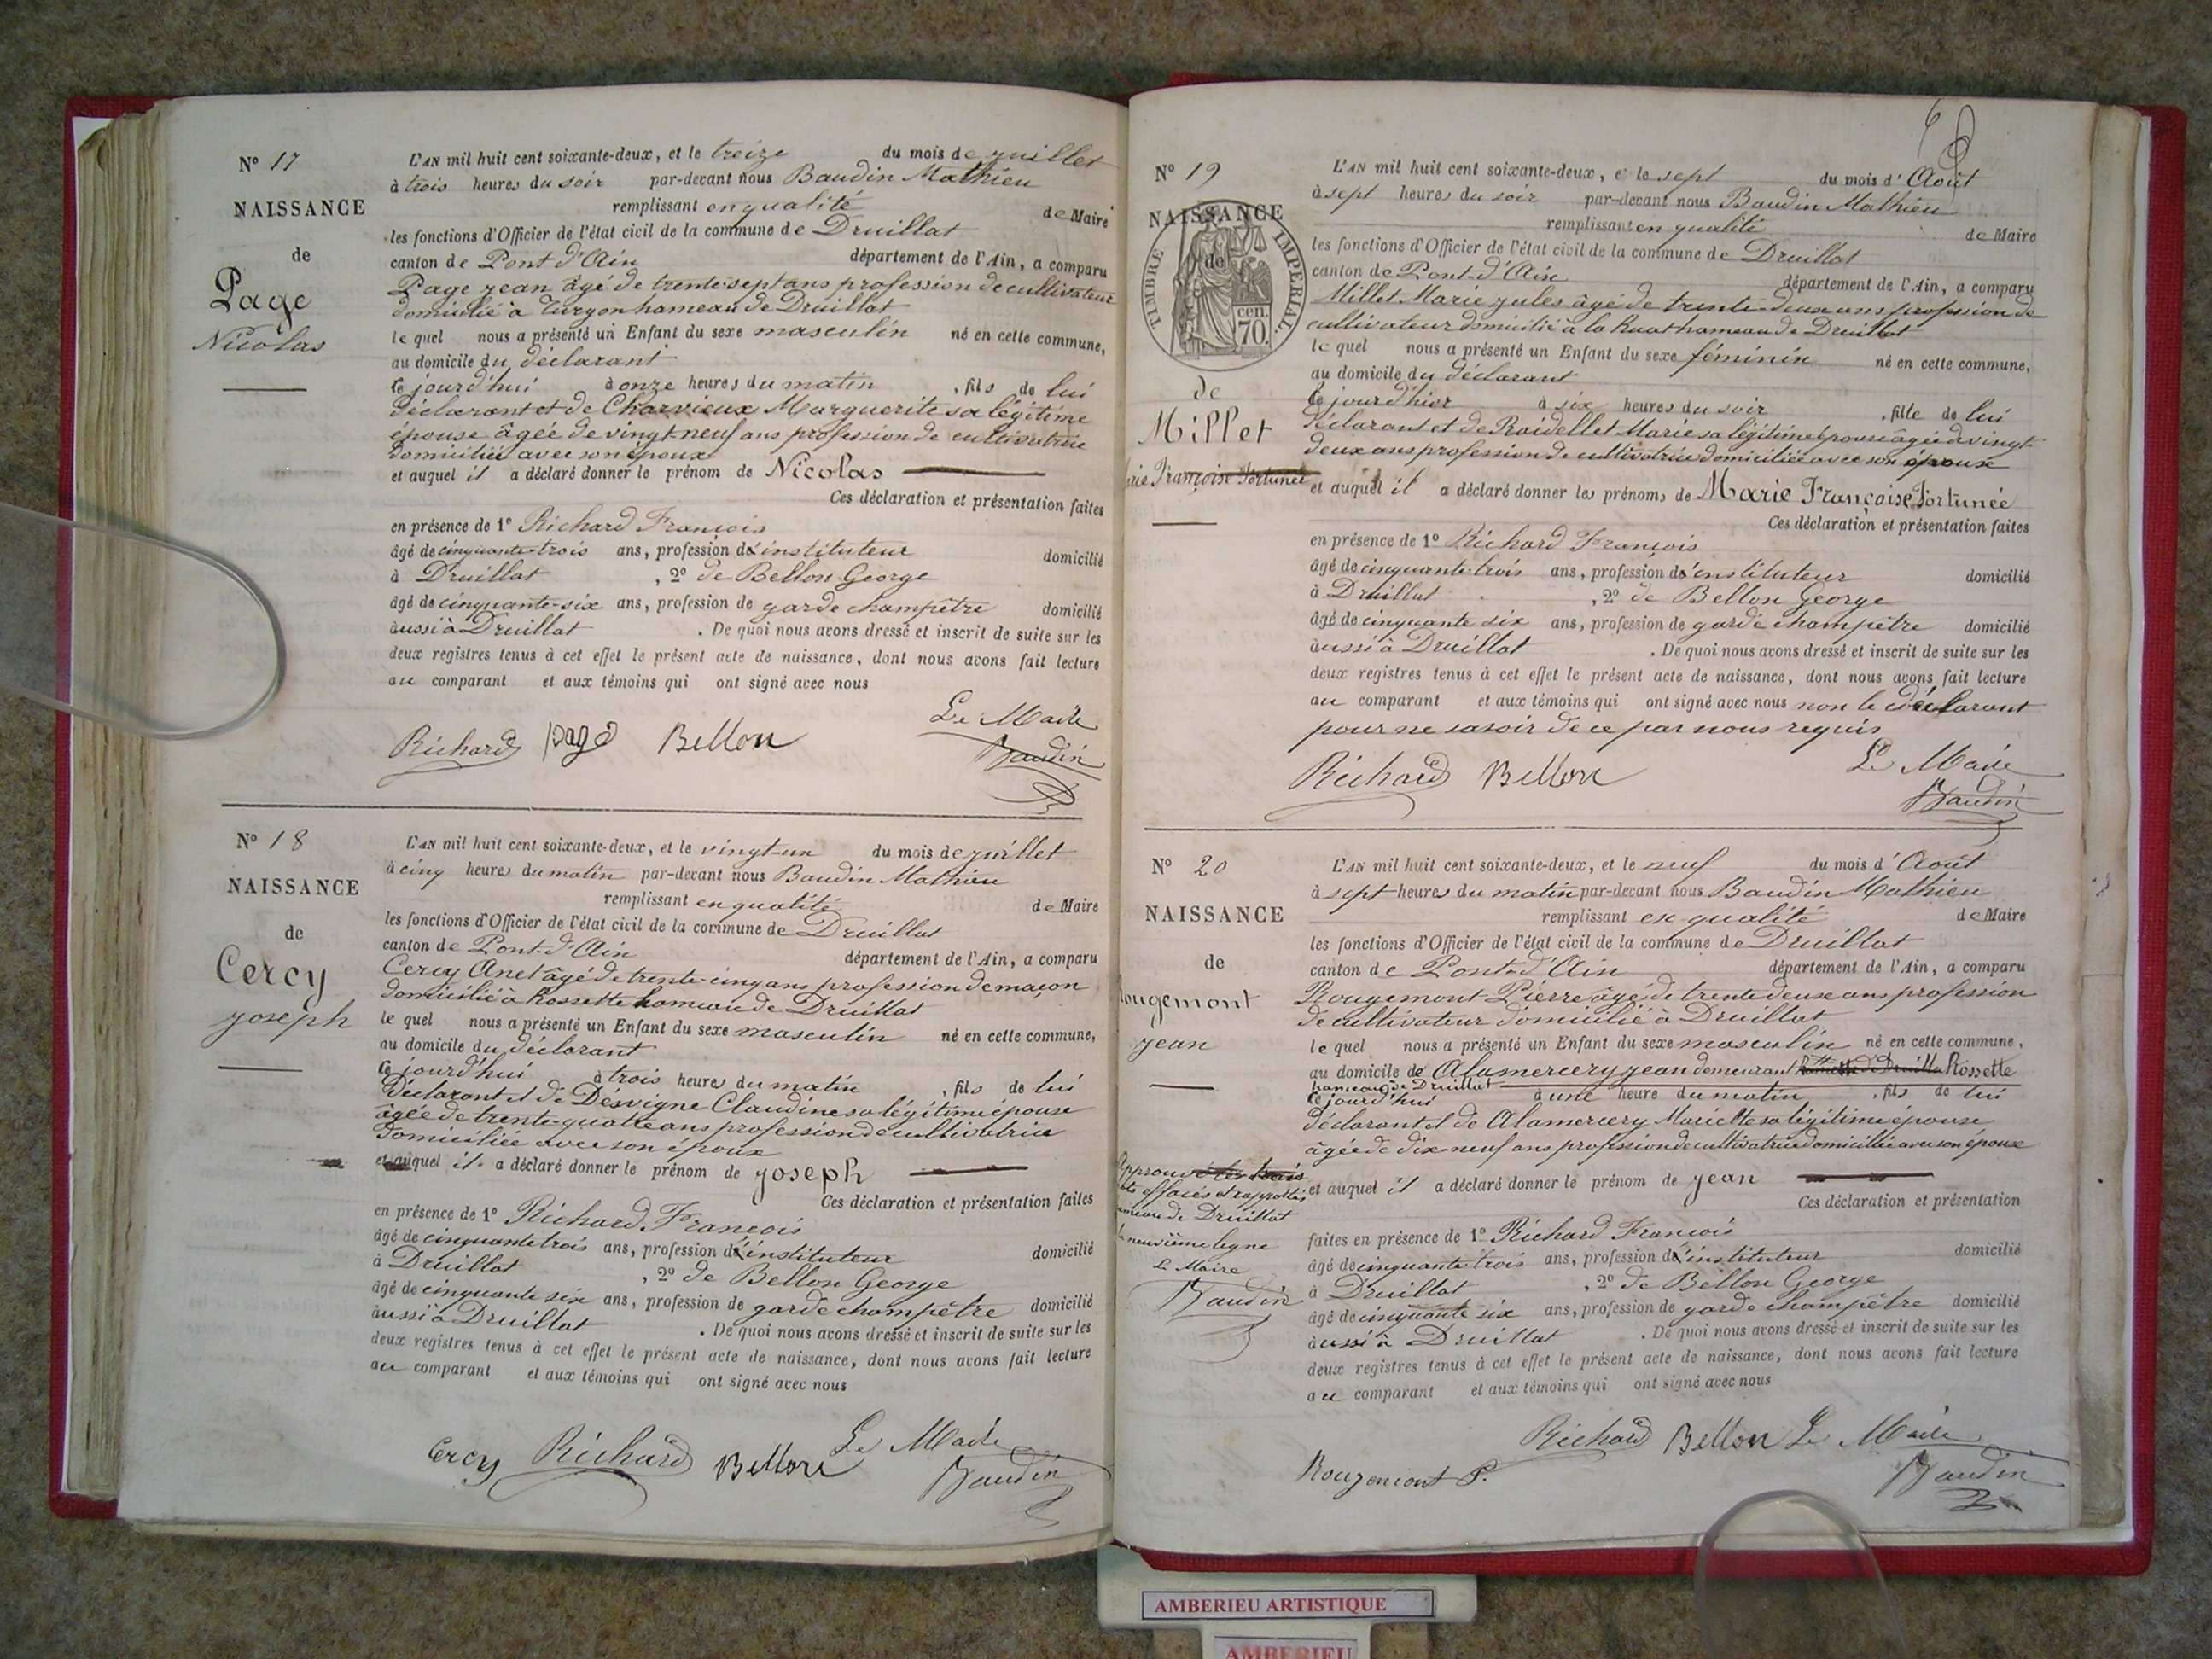 N° 17
NAISSANCE
de
Page
Nicolas
L'AN mil huit cent soixante-deux, et le treize du mois de juillet
à trois heures du soir par-devant nous Baudin Mathieu
remplissant en qualité de Maire
les fonctions d'Officier de l'état civil de la commune de Druillat
canton de Pont d'Ain département de l'Ain, a comparu
Page jean âgé de trente-sept ans profession de cultivateur
domicilié à Turgon hameau de Druillat
le quel nous a présenté un Enfant du sexe masculin né en cette commune,
au domicile du déclarant
ce jourd'hui à onze heures du matin , fils de lui
déclarant et de Charvieux Marguerite sa légitime
épouse âgée de vingt-neuf ans profession de cultivatrice
domiciliée avec son époux
et auquel il a déclaré donner le prénom de Nicolas
Ces déclaration et présentation faites
en présence de 1° Richard François
âgé de cinquante-trois ans, profession d'instituteur domicilié
à Druillat , 2° de Bellon George
âgé de cinquante-six ans, profession de garde champêtre domicilié
aussi à Druillat . De quoi nous avons dressé et inscrit de suite sur les
deux registres tenus à cet effet le présent acte de naissance, dont nous avons fait lecture
au comparant et aux témoins qui ont signé avec nous
Richard page Bellon Le Maire
Baudin
N° 18
NAISSANCE
de
Cercy
joseph
L'AN mil huit cent soixante-deux, et le vingt-un du mois de juillet
à cinq heures du matin par-devant nous Baudin Mathieu
remplissant en qualité de Maire
les fonctions d'Officier de l'état civil de la commune de Druillat
canton de Pont-d'Ain département de l'Ain, a comparu
Cercy Anet âgé de trente-cinq ans profession de maçon
domicilié à Rossette hameau de Druillat
le quel nous a présenté un Enfant du sexe masculin né en cette commune,
au domicile du déclarant
ce jourd'hui à trois heures du matin , fils de lui
déclarant et de Désvigne Claudine sa légitime épouse
âgée de trente-quatre ans profession de cultivatrice
domiciliée avec son époux
et auquel il a déclaré donner le prénom de joseph
Ces déclaration et présentation faites
en présence de 1° Richard François
âgé de cinquante trois ans, profession d'instituteur domicilié
à Druillat , 2° de Bellon George
âgé de cinquante six ans, profession de garde champêtre domicilié
aussi à Druillat . De quoi nous avons dressé et inscrit de suite sur les
deux registres tenus à cet effet le présent acte de naissance, dont nous avons fait lecture
au comparant et aux témoins qui ont signé avec nous
Cercy Richard Bellon Le Maire
Baudin
N° 19
NAISSANCE
TIMBRE IMPERIAL
cen.
70.
de
de
Millet
Marie Françoise Fortunée
L'AN mil huit cent soixante-deux, et le sept du mois d'Août
à sept heures du soir par-devant nous Baudin Mathieu
remplissant en qualité de Maire
les fonctions d'Officier de l'état civil de la commune de Druillat
canton de Pont-d'Ain département de l'Ain, a comparu
Millet Marie jules âgé de trente-deux ans profession de
cultivateur domicilié à la Ruat hameau de Druillat
le quel nous a présenté un Enfant du sexe féminin né en cette commune,
au domicile du déclarant
le jourd'hier à six heures du soir , fille de lui
déclarant et de Raidellet Marie sa légitime épouse âgée de vingt
deux ans profession de cultivatrice domiciliée avec son époux
et auquel il a déclaré donner les prénoms de Marie Françoise Fortunée
Ces déclaration et présentation faites
en présence de 1° Richard François
âgé de cinquante trois ans, profession d'instituteur domicilié
à Druillat , 2° de Bellon George
âgé de cinquante six ans, profession de garde champêtre domicilié
aussi à Druillat . De quoi nous avons dressé et inscrit de suite sur les
deux registres tenus à cet effet le présent acte de naissance, dont nous avons fait lecture
au comparant et aux témoins qui ont signé avec nous non le déclarant
pour ne savoir de ce par nous requis
Richard Bellon Le Maire
Baudin
N° 20
NAISSANCE
de
Rougemont
jean
L'AN mil huit cent soixante-deux, et le neuf du mois d'Août
à sept heures du matin par-devant nous Baudin Mathieu
remplissant en qualité de Maire
les fonctions d'Officier de l'état civil de la commune de Druillat
canton de Pont-d'Ain département de l'Ain, a comparu
Rougemont Pierre âgé de trente deux ans profession
de cultivateur domicilié à Druillat
le quel nous a présenté un Enfant du sexe masculin né en cette commune,
au domicile de Alamercery jean demeurant Rossette
hameau de Druillat
ce jourd'hui à une heure du matin , fils de lui
déclarant et de Alamercery Mariette sa légitime épouse
âgée de dix-neuf ans profession de cultivatrice domiciliée avec son époux
et auquel il a déclaré donner le prénom de jean
Ces déclaration et présentation
faites en présence de 1° Richard François
âgé de cinquante trois ans, profession d'instituteur domicilié
à Druillat , 2° de Bellon George
âgé de cinquante six ans, profession de garde champêtre domicilié
aussi à Druillat . De quoi nous avons dressé et inscrit de suite sur les
deux registres tenus à cet effet le présent acte de naissance, dont nous avons fait lecture
au comparant et aux témoins qui ont signé avec nous
Approuvé les trois
effacés et rapportés
hameau de Druillat
neuvième ligne
Le Maire
Baudin
Richard Bellon Le Maire
Rougemont P. Baudin
AMBERIEU ARTISTIQUE
AMBERIEU